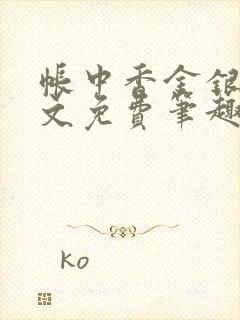 帐中香金银
文免费笔趣
ko